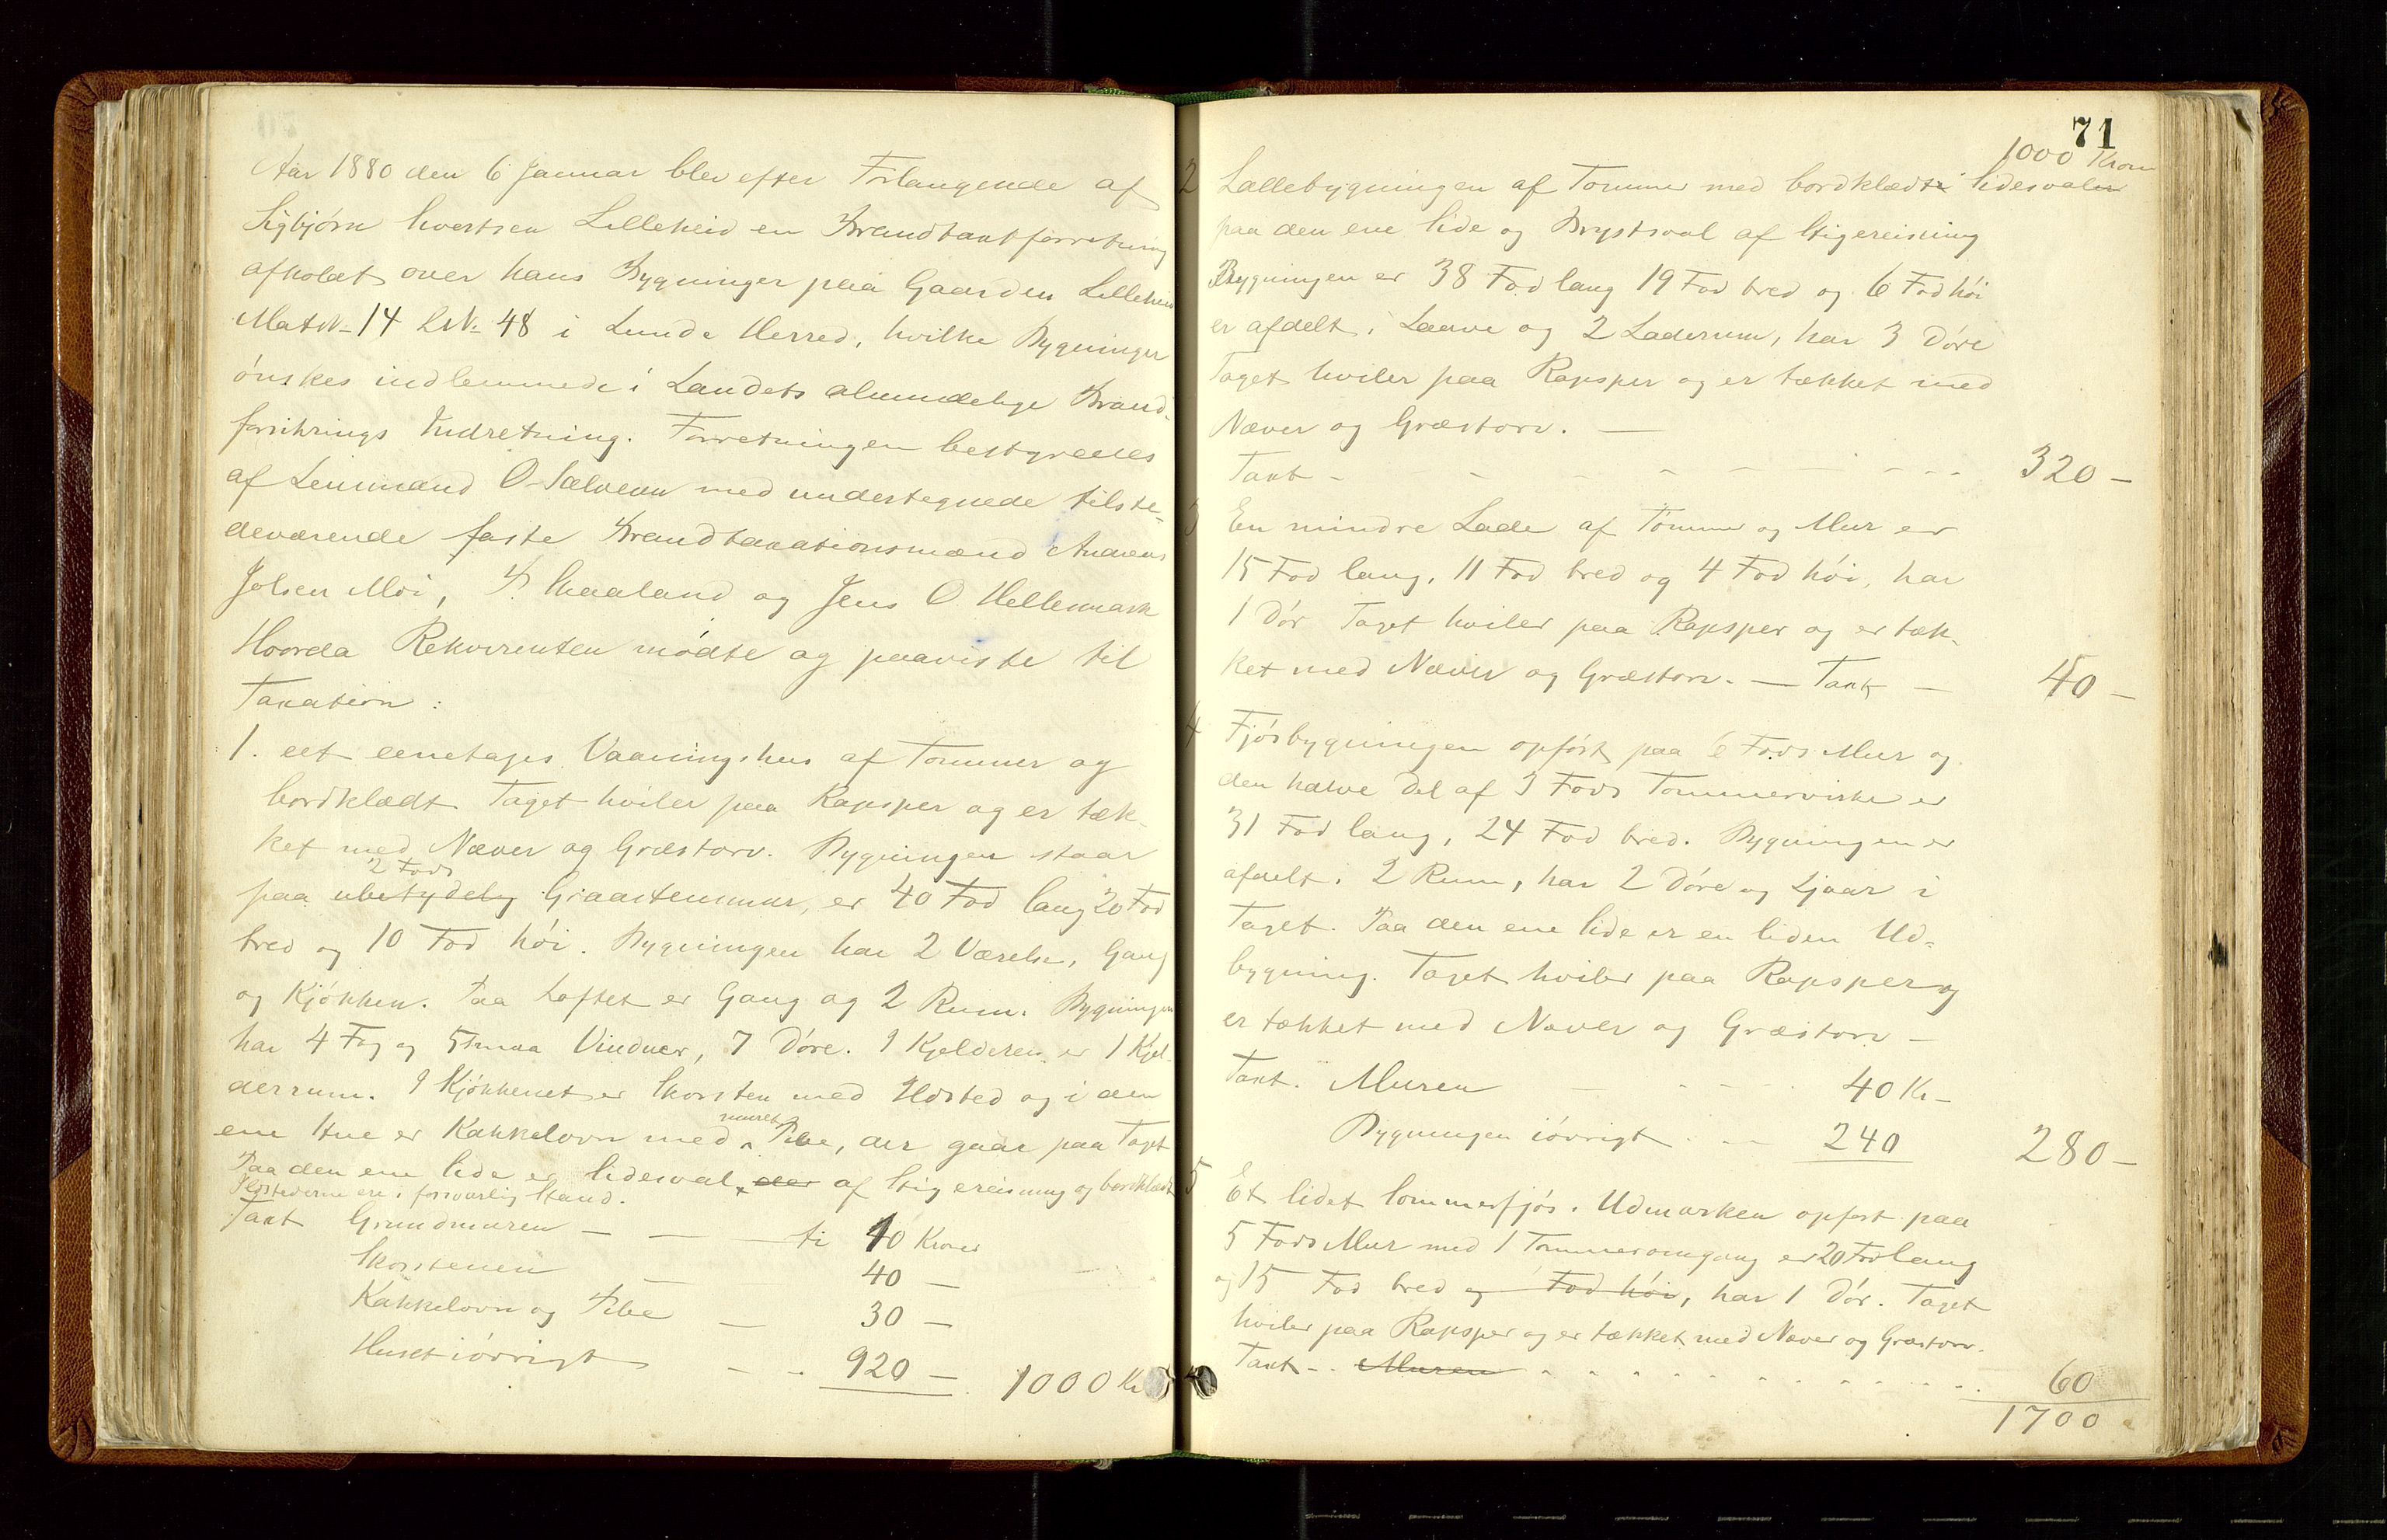 Aar 1880 den 6 Januar blev efter Forlangende af
Sigbjørn Sivertsen Lilleheid en Brandtaxtforretning
afholdt over hans Bygninger paa Gaarden Lilleheid
Mat№ 14 L№ 48 i Lunde Herred, hvilke Bygninger
ønskes indlemmede i Landets almindelige Brand-
forsikrings Indretning. Forretningen bestyredes
af Lensmand O. Salvesen med undertegnede tilste-
deværende faste Brandtaxationsmænd Andreas
Jolsen Moi, P. Skaaland og Jens O Hellesmark
Hovda Rekvirenten mødte og paaviste til
Taxation:
1. eet eenetages Vaaningshus af Tømmer og
bordklædt Taget hviler paa Rapsper og er tæk-
ket med Næver og Græstorv. Bygningen staar
2 Fods
paa ubetydelig Graastensmur, er 40 Fod lang 20 Fod
bred og 10 Fod høi. Bygningen har 2 Værelser, Gang
og Kjøkken. Paa Loftet er Gang og 2 Rum. Bygningen
har 4 Fag og 5 smaa Vinduer, 7 Døre. I Kjelderen er 1 Kjel-
derrum. I Kjøkkenet er Skorsten med Ildsted og i den
muret
ene Stue er Kakkelovn med Pibe, der gaar paa Taget
Paa den ene Side er Sidesval, der af Stigereisning og bordklædt
Ildstederne ere i forsvarlig Stand.
Taxt Grundmuren — — ti 10 Kroner
Skorstenen — 40 —
Kakkelovn og Pibe — 30 —
Huset iøvrigt — - 920 — 1000 Kr
71
1000 Kroner
2 Ladebygningen af Tømmer med bordklædt Sidesvaler
paa den ene Side og Brystsval af Stigereisning
Bygningen er 38 Fod lang 19 Fod bred og 6 Fod høi
er afdelt i Laave og 2 Laderum, har 3 Døre
Taget hviler paa Rapsper og er tækket med
Næver og Græstorv. —
Taxt - - - - - 320 —
3 En mindre Lade af Tømmer og Mur er
15 Fod lang, 11 Fod bred og 4 Fod høi, har
1 Dør Taget hviler paa Rapsper og er tæk-
ket med Næver og Græstorv. — Taxt — 40 —
4 Fjøsbygningen opført paa 6 Fods Mur og
den halve Del af 3 Fods Tømmervirke er
31 Fod lang, 24 Fod bred. Bygningen er
afdelt i 2 Rum, har 2 Døre og Ljaar i
Taget. Paa den ene Side er en liden Ud-
bygning. Taget hviler paa Rapsper og
er tækket med Næver og Græstorv —
Taxt. Muren — - - 40 Kr —
Bygningen iøvrigt - - 240 280 —
5 Et lidet Sommerfjøs i Udmarken opført paa
5 Fods Mur med 1 Tømmeromgang er 20 Fod lang
og 15 Fod bred og Fod høi, har 1 Dør. Taget
hviler paa Rapsper og er tækket med Næver og Græstorv.
Taxt - . Muren - - - - - 60
1700